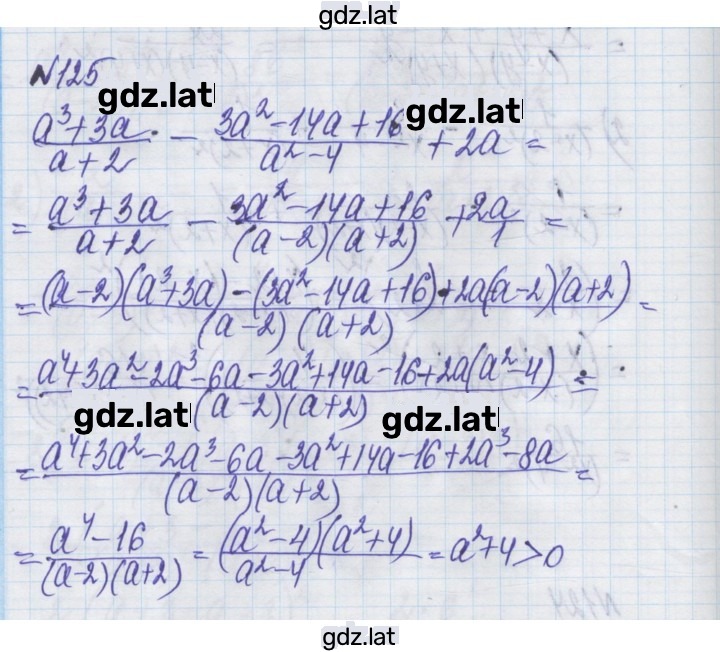 gdz.lat
№125
gdz.lat gdz.lat
(a³+3a)/(a+2) - (3a²-14a+16)/(a²-4) + 2a =
= (a³+3a)/(a+2) - (3a²-14a+16)/((a-2)(a+2)) + 2a/1 =
= ((a-2)(a³+3a)-(3a²-14a+16)+2a(a-2)(a+2))/((a-2)(a+2)) =
= (a⁴+3a²-2a³-6a-3a²+14a-16+2a(a²-4))/((a-2)(a+2)) =
gdz.lat gdz.lat
= (a⁴+3a²-2a³-6a-3a²+14a-16+2a³-8a)/((a-2)(a+2)) =
= (a⁴-16)/((a-2)(a+2)) = ((a²-4)(a²+4))/(a²-4) = a²+4>0
gdz.lat